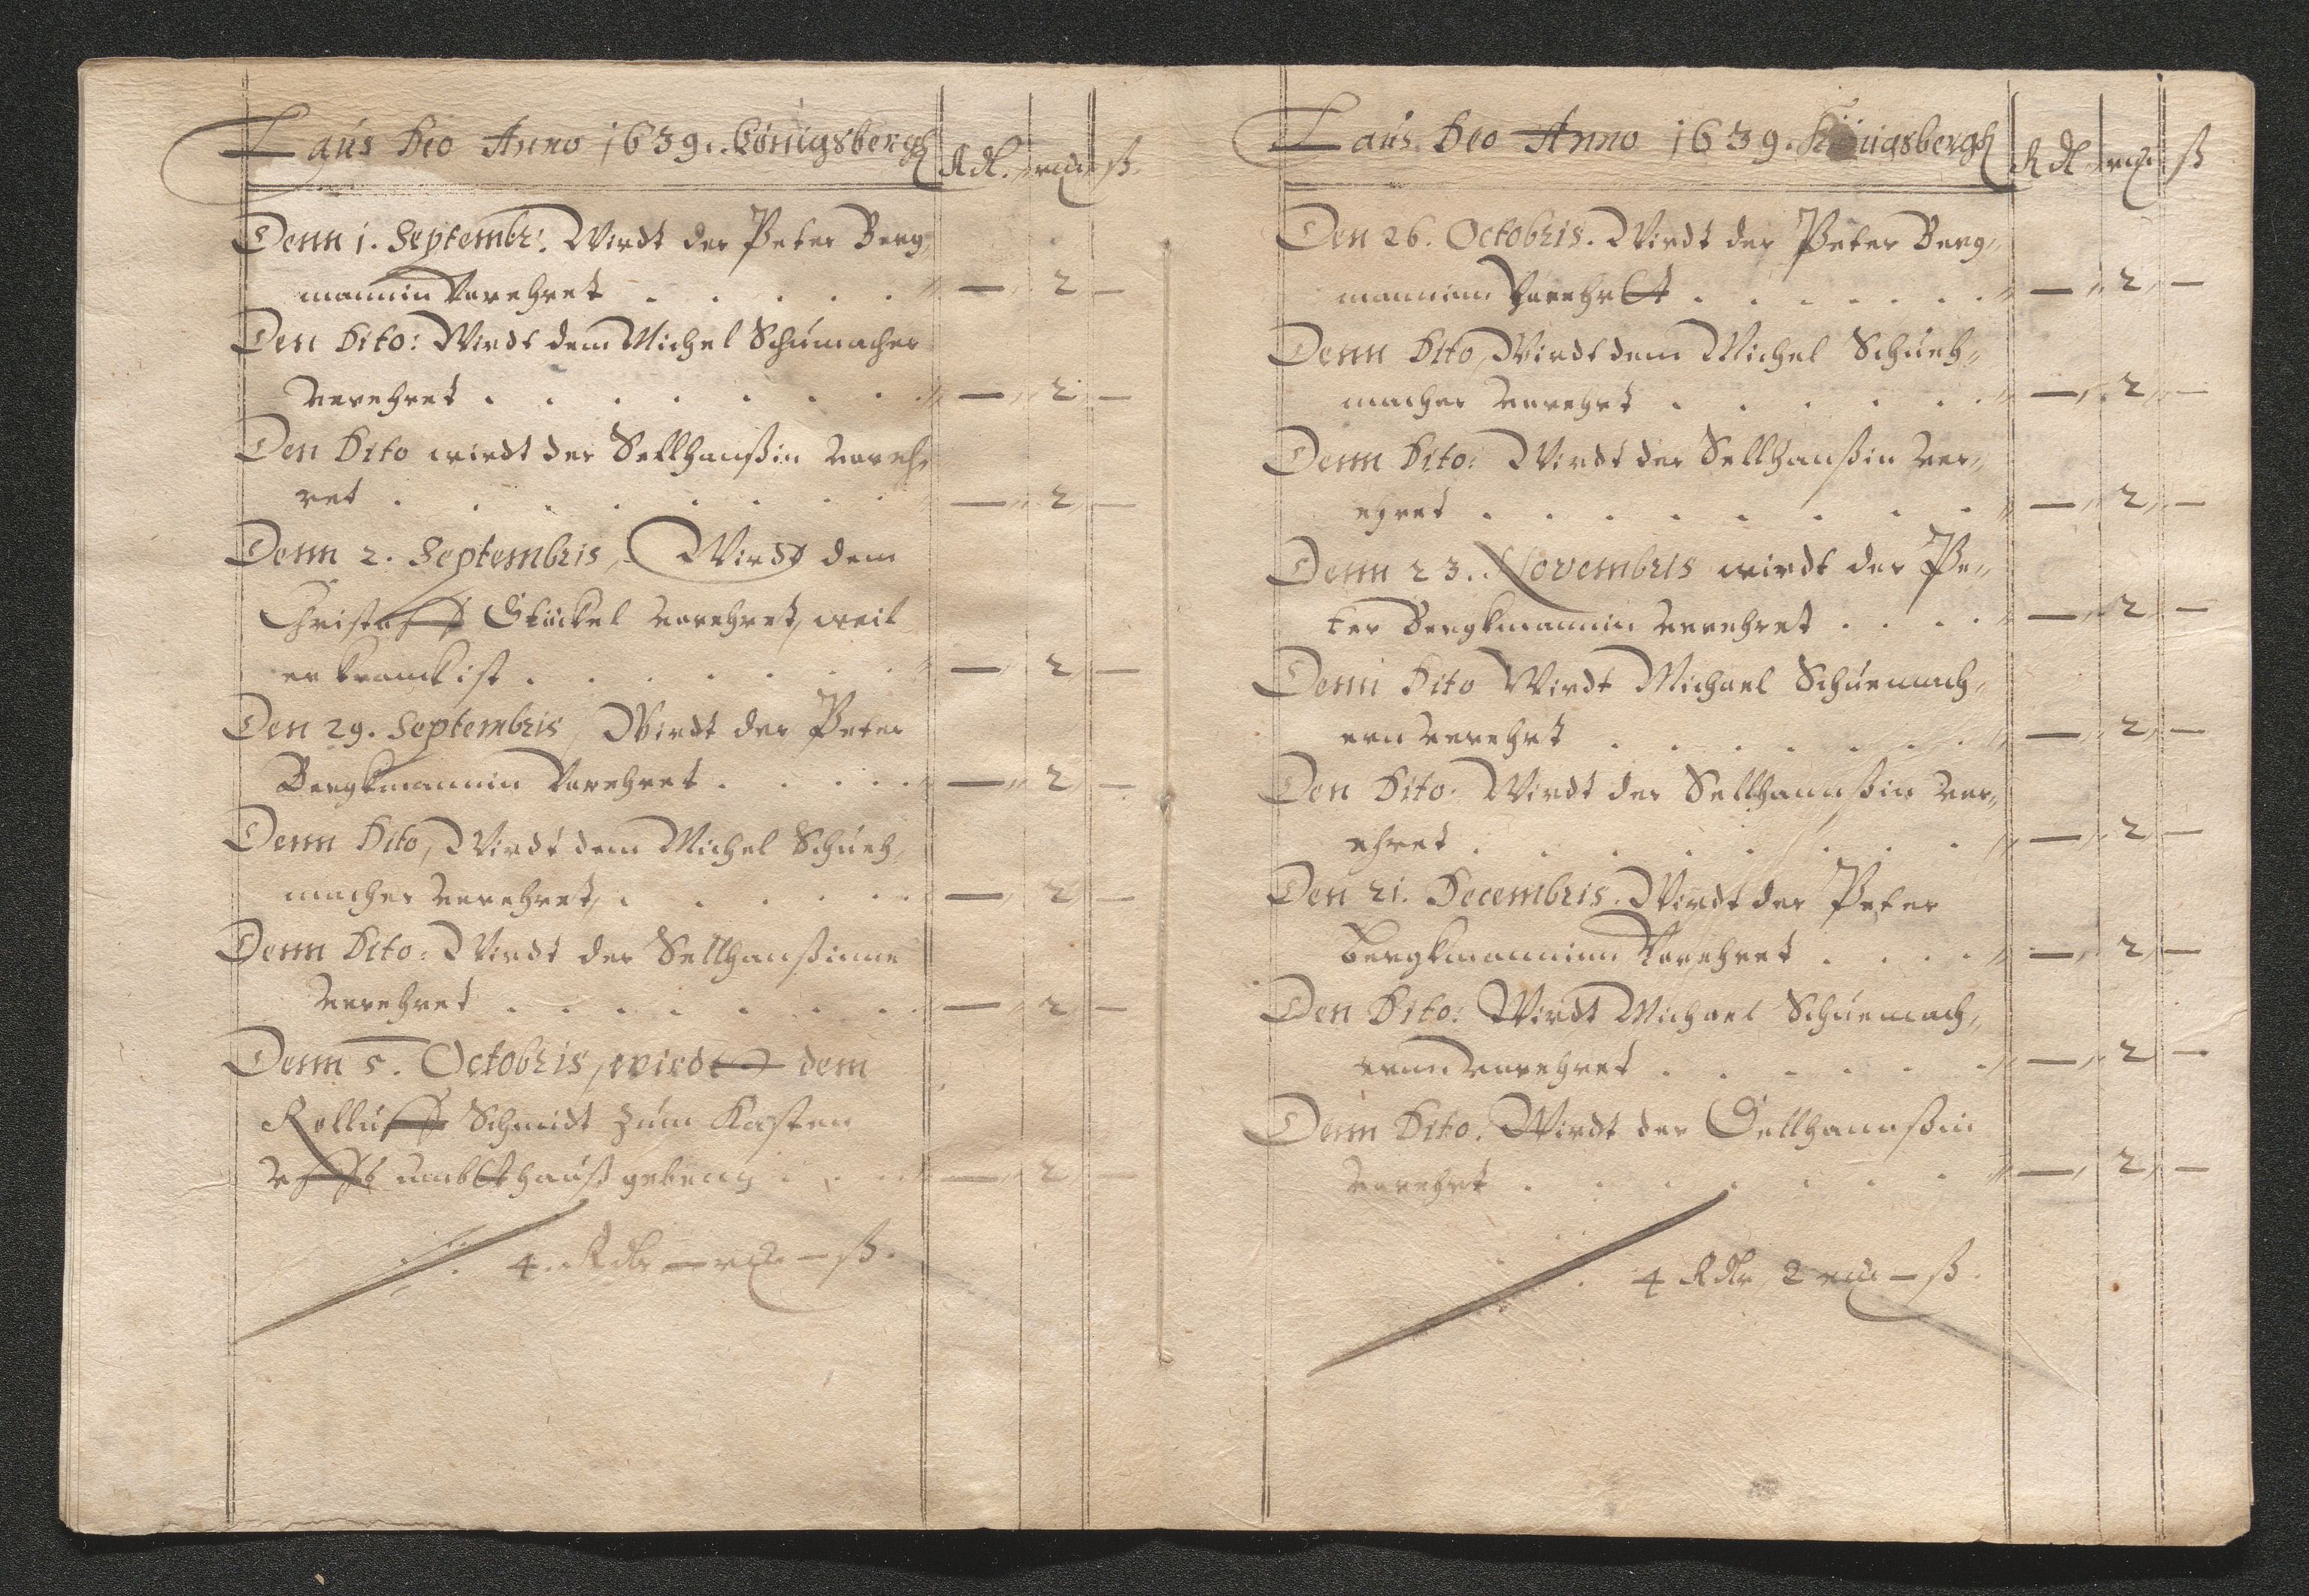 Laus Deo Anno 1639. Königsbergk Rdl. mℓ ß.
Denn 1. Septembr: Wirdt der Peter Berg,
mannin Verehret . . . . . — 2 —
Den Dito: Wirdt dem Michel Schumacher
Verehret . . . . . . . — 2 —
Den Dito wirdt der Sellhanßin Vereh,
ret . . . . . . . — 2 —
Denn 2. Septembris, Wirdt dem
Christoff Stöckel verehret, weil
er kranck ist . . . . . . — 2 —
Den 29. Septembris, Wirdt der Peter
Bergkmannin Verehret . . . . — 2 —
Denn Dito, Wirdt dem Michel Schueh,
macher verehret, . . . . . — 2 —
Denn Dito: Wirdt der Sellhanßinne
Verehret . . . . . . . — 2 —
Denn 5. Octobris, wirdt dem
Schmidt zum Kasten
gebenn . . . — 2 —
4. Rdlr — mℓ — ß.
Laus Deo Anno 1639. Königsbergk Rdl mℓ ß
Den 26. Octobris. Wirdt der Peter Berg,
manninn Verehrett . . . . . . — 2 —
Denn Dito, Wirdt dem Michel Schueh,,
macher verehret . . . . . . — 2 —
Denn Dito: Wirdt der Sellhanßin Ver,,
ehret . . . . . . . . — 2 —
Denn 23. Novembris wirdt der Pe,,
ter Bergkmannin verehret . . . . — 2 —
Denn Dito Wirdt Michael Schuemach,
ern verehrt . . . . . . — 2 —
Den Dito. Wirdt der Sellhannßin Ver,,
ehret . . . . . . . . — 2 —
Den 21. Decembris. Wirdt der Peter
Bergkmanninn Verehret . . . . — 2 —
Den Dito: Wirdt Michael Schuemach,,
ernn verehret . . . . . . — 2 —
Denn Dito. Wirdt der Sellhannßin
Verehrt . . . . . . . — 2 —
4 Rdlr, 2 mℓ — ß.